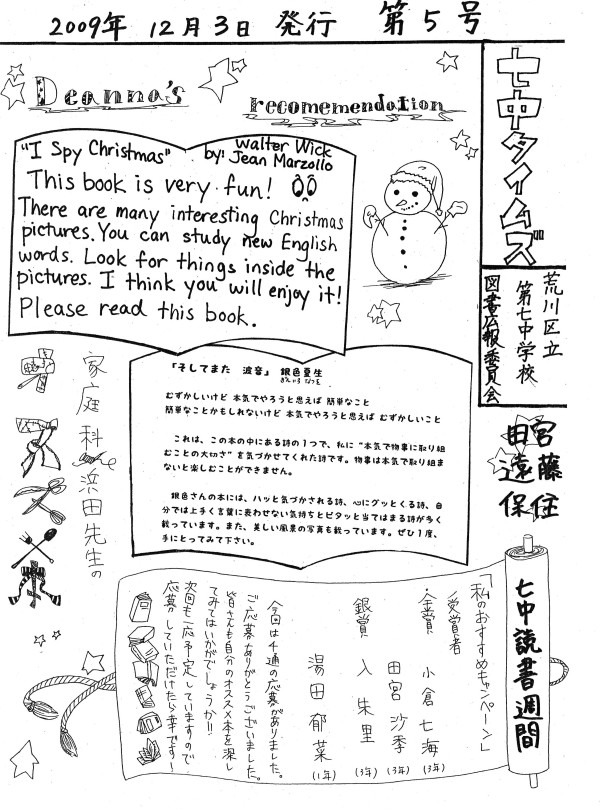 2009年 12月3日 発行 第5号
七中タイムズ
荒川区立
第七中学校
図書広報委員会
Deanna's recomemendation
"I Spy Christmas" by: Walter Wick
Jean Marzollo
This book is very fun!
There are many interesting Christmas
pictures. You can study new English
words. Look for things inside the
pictures. I think you will enjoy it!
Please read this book.
宮藤住
田遠保
家庭科 浜田先生の
オススメ本
「そしてまた 波音」 銀色夏生
ぎんいろ なつを
むずかしいけど 本気でやろうと思えば 簡単なこと
簡単なことかもしれないけど 本気でやろうと思えば むずかしいこと
これは、この本の中にある詩の1つで、私に“本気で物事に取り組
むことの大切さ”を気づかせてくれた詩です。物事は本気で取り組ま
ないと楽しむことができません。
銀色さんの本には、ハッと気づかされる詩、心にグッとくる詩、自
分では上手く言葉に表わせない気持ちとピタッと当てはまる詩が多く
載っています。また、美しい風景の写真も載っています。ぜひ1度、
手にとってみて下さい。
七中読書週間
「私のおすすめキャンペーン」
受賞者
・金賞 小倉 七海(3年)
田宮 沙季(3年)
銀賞 入 朱里(3年)
湯田 郁菜(1年)
今回は千通の応募がありました。
ご応募ありがとうございました。
皆さんも自分のオススメ本を探し
てみてはいかがでしょうか!!
次回も一応予定していますので
応募していただけたら幸です〜